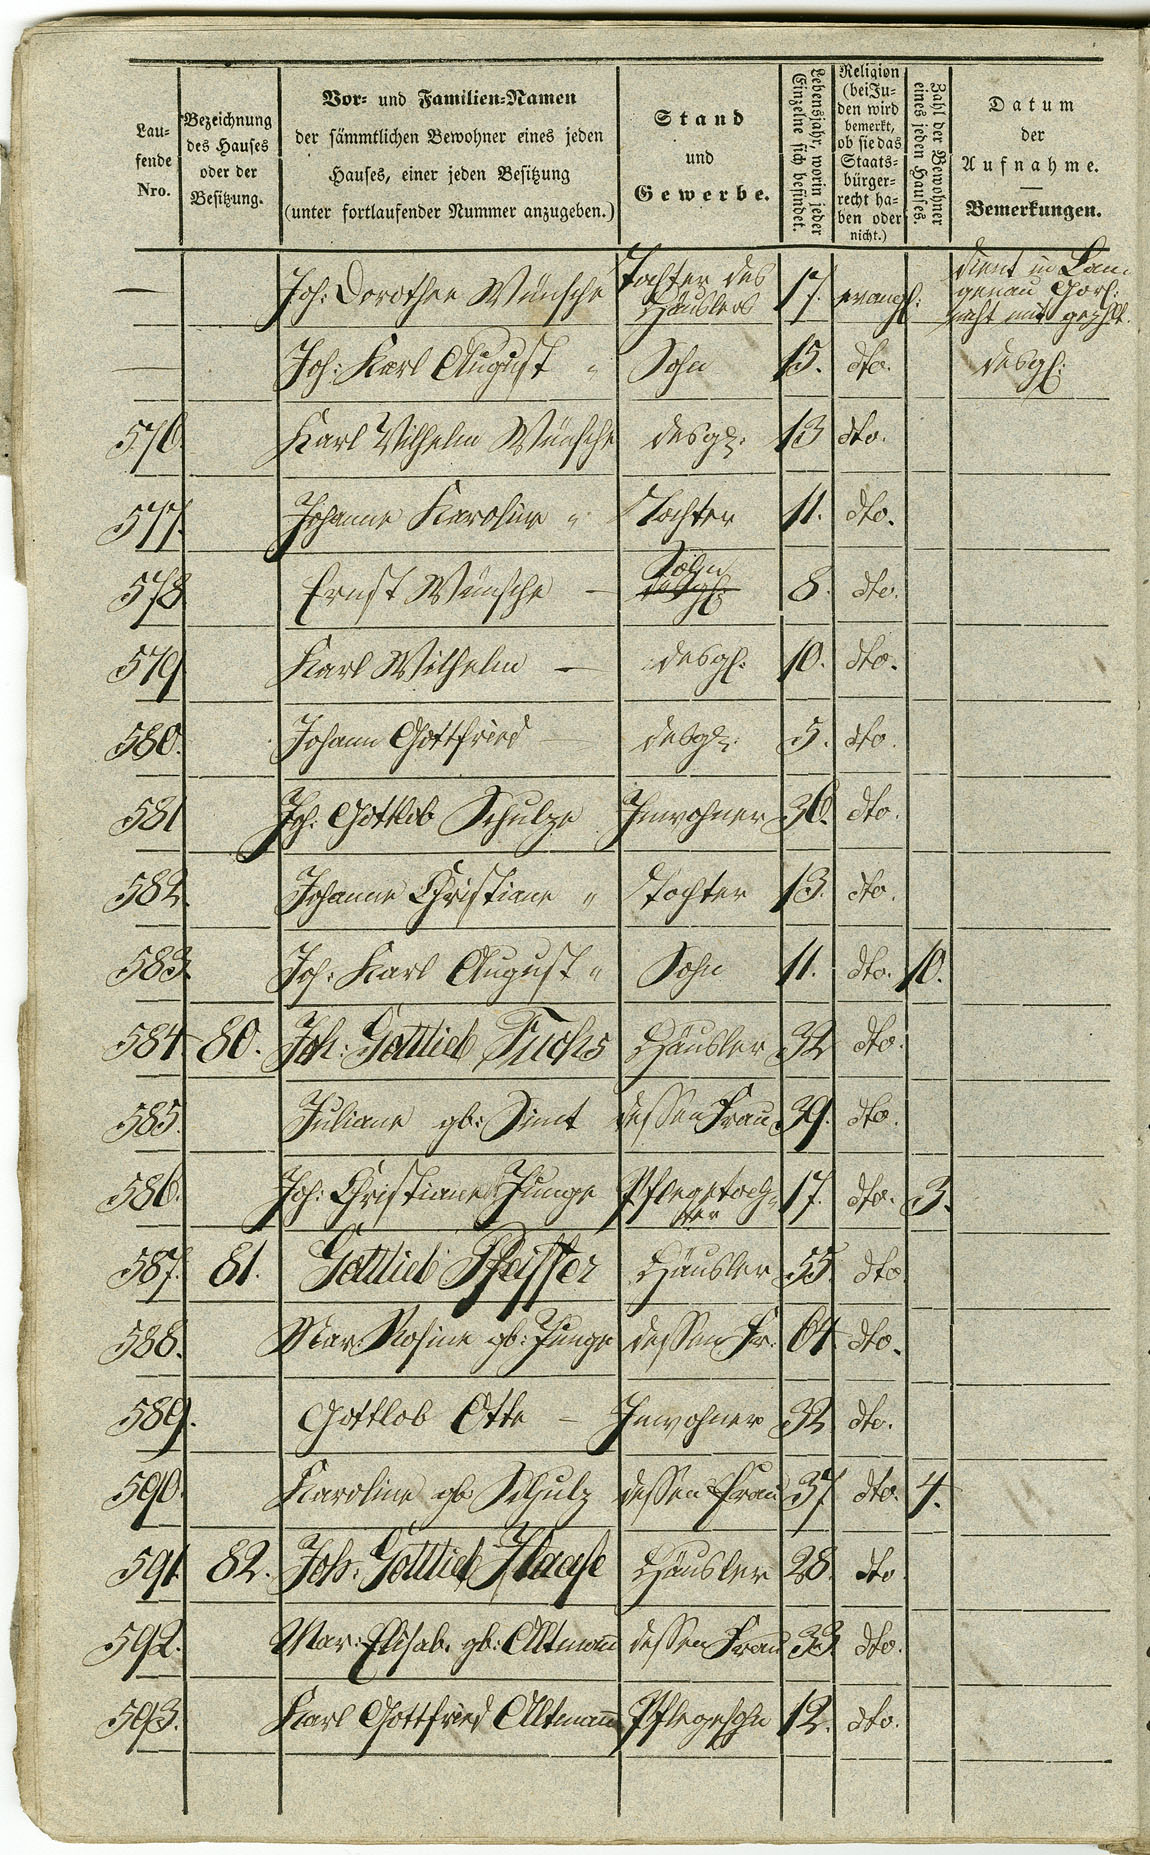 Lau-
fende
Nro.
Bezeichnung
des Hauses
oder der
Besitzung.
Vor- und Familien-Namen
der sämmtlichen Bewohner eines jeden
Hauses, einer jeden Besitzung
(unter fortlaufender Nummer anzugeben.)
Stand
und
Gewerbe.
Lebensjahr, worin jeder
Einzelne sich befindet.
Religion
(bei Ju-
den wird
bemerkt,
ob sie das
Staats-
bürger-
recht ha-
ben oder
nicht.)
Zahl der Bewohner
eines jeden Hauses.
Datum
der
Aufnahme.
Bemerkungen.
— Joh: Dorothee Wünsche Tochter des Häuslers 17. evangl: dient in Lan-
genau Görl:
nicht mit gezählt.
— Joh: Karl August " Sohn 15. dto. desgl:
576. Karl Wilhelm Wünsche desgl: 13 dto.
577. Johanne Karoline " Tochter 11. dto.
578. Ernst Wünsche — Sohn desgl: 8. dto.
579. Karl Wilhelm — desgl: 10. dto.
580. Johann Gottfried — desgl: 5. dto.
581 Joh: Gottlob Schulze Inwohner 36. dto.
582. Johanne Christiane " Tochter 13. dto.
583. Joh: Karl August " Sohn 11. dto. 10.
584 80. Joh: Gottlieb Fuchs Häusler 32 dto.
585. Juliane gb: Simt dessen Frau 39. dto.
586. Joh: Christiane Junge Pflegetoch-
ter 17. dto. 3.
587. 81. Gottlieb Pfeiffer Häusler 55. dto.
588. Mar: Rosine gb: Junge dessen Fr: 64. dto.
589. Gottlob Otte — Inwohner 32 dto.
590. Karoline gb: Schulz dessen Frau 37 dto. 4.
591. 82. Joh: Gottlieb Haase Häusler 28. dto.
592. Mar: Elisab. gb: Altmann dessen Frau 33. dto.
593. Karl Gottfried Altmann Pflegesohn 12. dto.